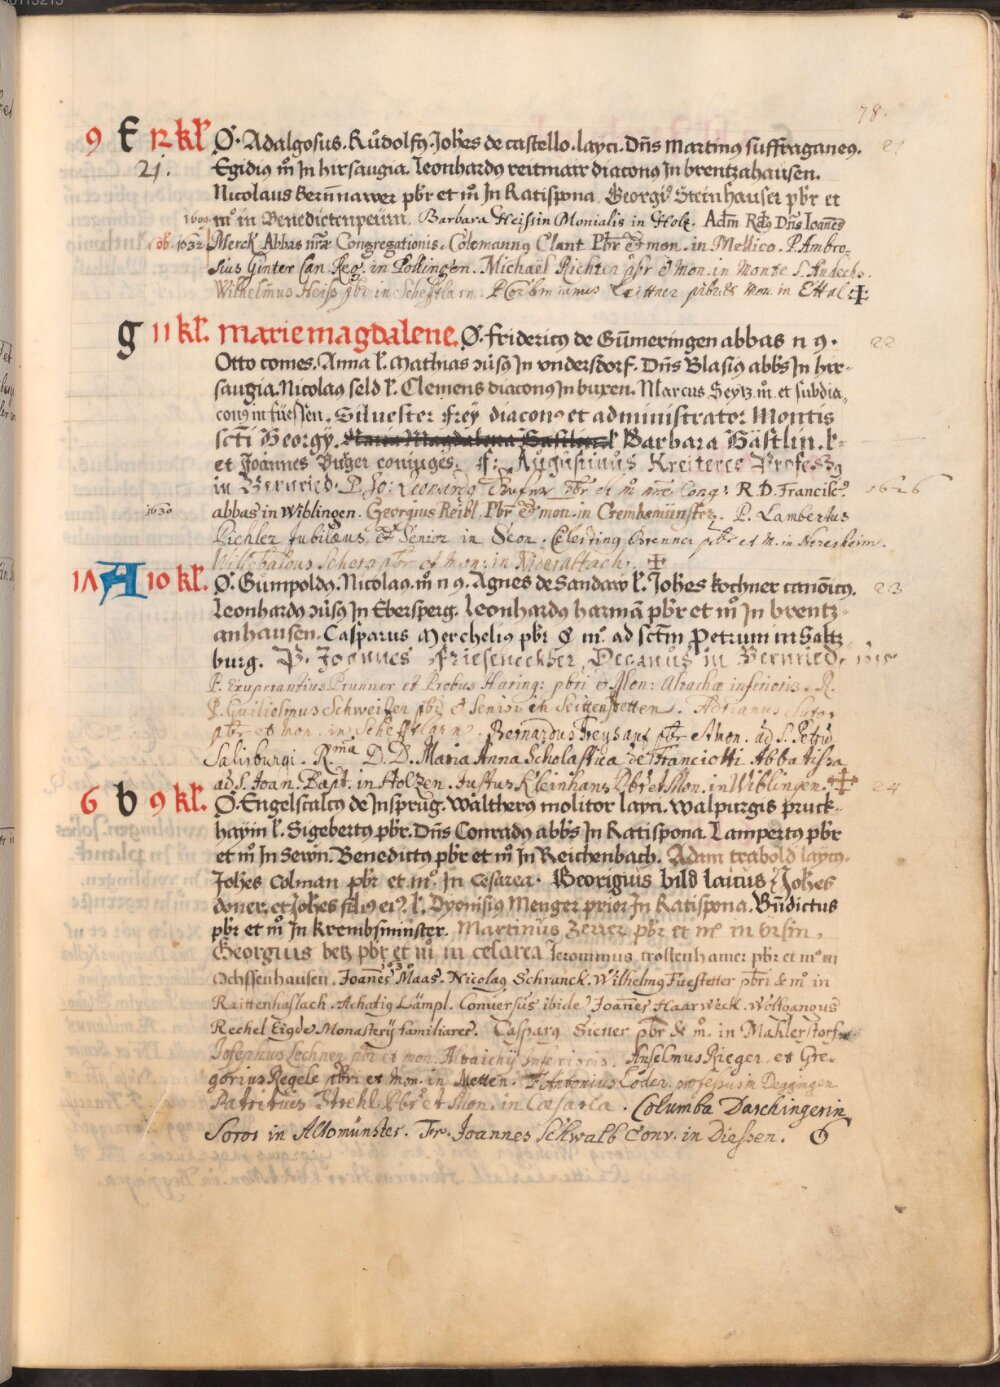 78.
9 f 12 kl̃ Ø. Adalgosus. Růdolfꝰ. Joh̃es de castello. layci. Dñs Martinꝰ suffraganeꝰ. 21
21. Egidiꝰ m̊ In hirsaugia. Leonhardꝰ reitmair diaconꝰ In brentzahausen.
Nicolaus kern̄nawer pb̃r et m̊ In Ratispona. Georgiꝰ Steinhauser pb̃r et
1609 m̊ in Benedictenpeurn. Barbara Heissin Monialis in Holtz. Adm̃ Rd̃ꝰ Dñs Ioannes
ob. 1632 Merck Abbas nr̃æ Congregationis. Colomannꝰ Clant Pb̃r & mon. in Mellico. P. Ambro-
sius Ginter Can. Reg. in Pollingen. Michaël Richter pb̃r & mon. in Monte S. Andechs.
Wilhelmus Heiss pb̃r in Scheftlarn. P. Corbinianus Leittner pr̃br. et Mon. in Ettal ✠
g 11 kl̃. marie magdalene. Ø. fridericꝰ de Gũmeringen abbas n 9. 22
Otto comes. Anna l̃. Mathias ꝯũsꝰ In vndersdorf. Dñs Blasiꝰ abb̃s In hir-
saugia. Nicolaꝰ seld l̃. Clemens diaconꝰ In buren. Marcus Seytz m̊. et subdia-
conꝰ in füessen. Siluester frey diaconꝰ et administrator Montis
sc̃ti Georgÿ. Barbara Hästlin. l̃-
et Joannes Burger coniuges. f: Augustinus Kreiterer Professꝰ
in Bernried. P. Jo: Leonardꝰ pb̃r et m̊ nr̃e Cong: R. D. Francisc⁹. 1626
1630 abbas in Wiblingen. Georgius Reibl Pb̃r & mon. in Cremßmünster. P. Lambertus
Pichler Jubilæus & Senior in Seon. Cælestinꝰ Brenner pb̃r et M. in Neresheim.
Willibaldus Scherz pb̃r et mon: in Nideraltach. ✠
17 A 10 kl̃. Ø. Gumpoldꝰ. Nicolaꝰ. m̊ n 9. Agnes de Sandaw l̃. Joh̃es kochner canõicꝰ. 23
Leonhardꝰ ꝯũsꝰ In Ebersperg. Leonhardꝰ harmã pb̃r et m̊ In brentz-
anhausen. Casparus Merchelius pb̃r & m̊. ad sctm̃ Petrum in Saltz
burg. P. Joannes Frieseneckher Decanus in Bernried. 1615
P. Exuperantius Prunner et Probus Haring: pbri & Mon: Altachæ inferioris. R.
P. Guilielmus Schweitzer pbr & Senior in Seittenstetten. Adrianus
pb̃r et mon. in Scheftlarn. Bernardus Freysauf pb̃r et Mon. ad S. Petrũ
Salisburgi. R.ma D. D. Maria Anna Scholastica de Franciotti Abbatissa
ad S. Joan. Bapt. in Holzen. Justus Kleinhans Pbr et Mon. in Wiblingen. ✠
6 b 9 kl̃. Ø. Engelscalcꝰ de Insprug. Waltherꝰ molitor layci. walpurgis pruck- 24
hayin l̃. Sigebertꝰ pb̃r. Dñs Conradꝰ abb̃s In Ratispona. Lampertꝰ pb̃r
et m̊ In Sewn. Benedictꝰ pb̃r et m̊ In Reichenbach. Adam trabold laycꝰ.
Joh̃es Colman pb̃r et m̊. In Cesarea. Georigius bild laicus Joh̃es
doner. et Joh̃es filiꝰ eiꝰ. l̃. Dyonisiꝰ Menger prior In Ratispona. Bñdictus
pb̃r et m̊ In krembsminster. Martinus Zerrer pb̃r et m̊ in vrsin.
Georgius betz pb̃r et m̊ in cesarea Ieronimus trostenhamer pb̃r et m̊ in
Ochssenhausen. Joannes Maas. Nicolaꝰ Schranck. Wilhelmꝰ Fuestetter pb̃ri & m̊ in
Raittenhaslach. Achatiꝰ Lämpl. Conuersus ibidẽ Joannes Haarweck. Wolfgangus
Rechel Eiusdẽ Monasterÿ familiares. Casparꝰ Siener pb̃r & m̊. in Mahlerstorf
Josephus Lechner pbr et mon. Altaichÿ Inferioris. Anselmus Rieger et Gre-
gorius Regele pb̃ri et Mon. in Metten. P. Antonius Loder professus in Deggingen
Patritius Strehl Pb̃r et Mon. in Cæsarea. Columba Daschingerin
Soror in Altomünster. Fr. Joannes Schwalb Conv. in Diessen.